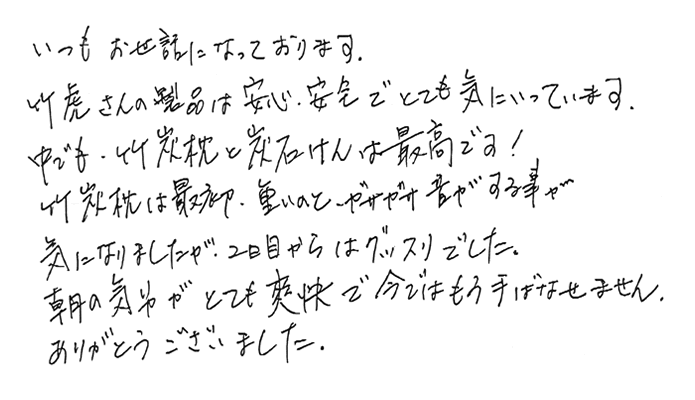 いつもお世話になっております.
竹虎さんの製品は安心・安全でとても気にいっています.
中でも・竹炭枕と炭石けんは最高です!
竹炭枕は最初・重いのと、ガサガサ音がする事が
気になりましたが・2日目からはグッスリでした。
朝の気分がとても爽快で今ではもう手ばなせません.
ありがとうございました.